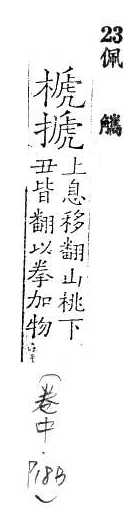 23佩觿
榹㨝
上息移翻山桃下
丑皆翻以拳加物
(卷中.
P18B)